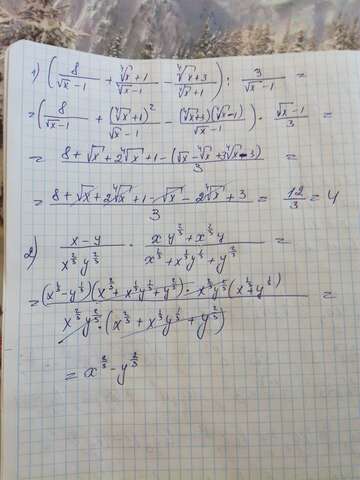 1) (8/(√x−1) + (⁴√x+1)/(√x−1) − (⁴√x+3)/(⁴√x+1)) : 3/(√x−1) =
= (8/(√x−1) + (⁴√x+1)²/(√x−1) − (⁴√x+3)(⁴√x−1)/(√x−1)) · (√x−1)/3 =
= (8+√x+2⁴√x+1−(√x−⁴√x+3⁴√x−3))/3 =
= (8+√x+2⁴√x+1−√x−2⁴√x+3)/3 = 12/3 = 4
2) (x−y)/(x^(2/3) y^(2/3)) · (x y^(2/3) + x^(2/3) y)/(x^(2/3) + x^(1/3) y^(1/3) + y^(2/3)) =
= (x^(1/3)−y^(1/3))(x^(2/3)+x^(1/3)y^(1/3)+y^(2/3)) · x^(2/3)y^(2/3)(x^(1/3)+y^(1/3)) / (x^(2/3) y^(2/3) · (x^(2/3)+x^(1/3)y^(1/3)+y^(2/3))) =
= x^(2/3) − y^(2/3)